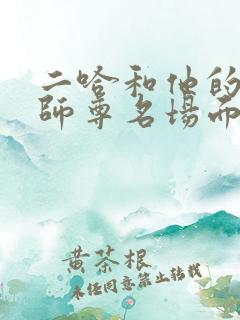 二哈和他的
師尊名場面
黄茶根
未经同意禁止转载